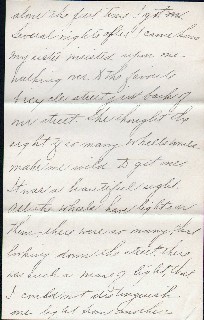 alone the first time I got on.
Several nights after I came home
my sister insisted upon me
walking over to the
bicycle street, just back of
our street. She thought the
sight of so many wheels would
make me wild to get one.
It was a beautiful sight.
All the wheels have lights on
them - there were so many that
looking down the street there
was such a maze of light, that
I could not distinguish
one light from another.